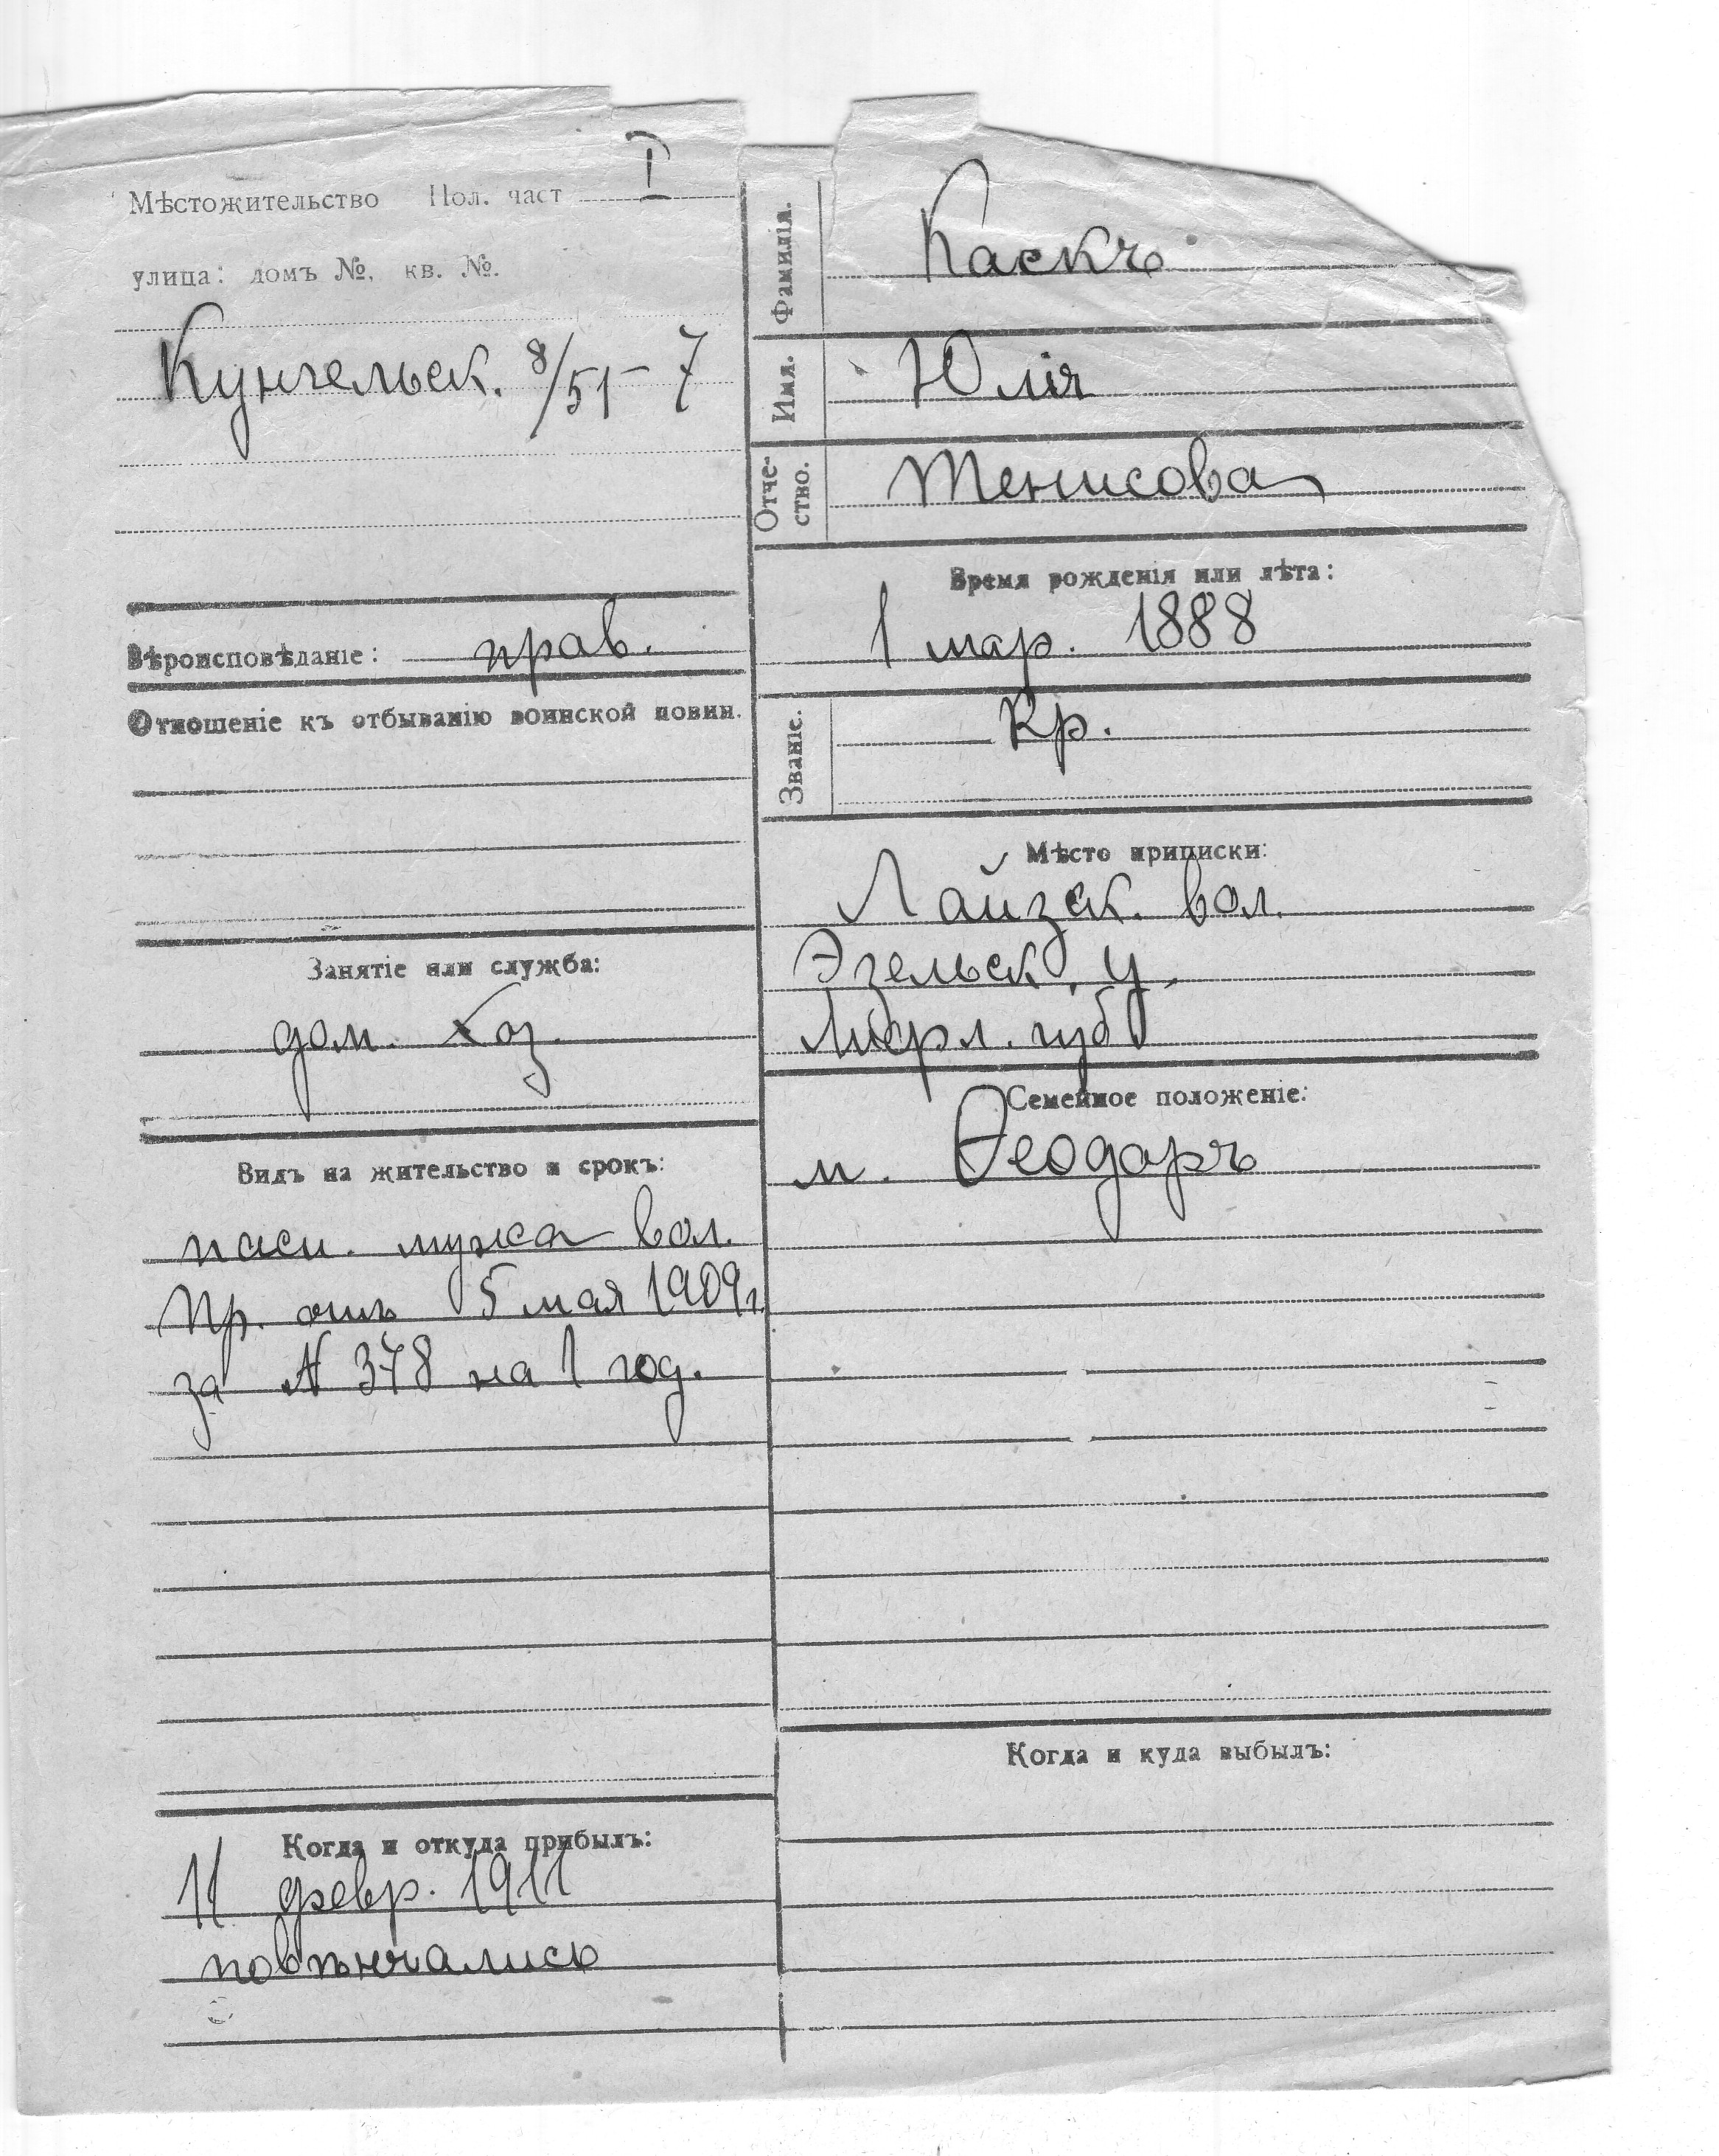 Мѣстожительство Пол. част I
улица: домъ №, кв. №.
Кунгельск. 8/51-7
Вѣроисповѣданіе: прав.
Отношеніе къ отбыванію воинской повин.
Занятіе или служба:
дом. хоз.
Видъ на жительство и срокъ:
пасп. мужа вол.
пр. отъ 5 мая 1909 г.
за № 378 на 1 год.
Когда и откуда прибылъ:
11 февр. 1911
повѣнчались
Фамилія. Каскъ
Имя. Юлія
Отче-
ство. Тенисова
Время рожденія или лѣта:
1 мар. 1888
Званіе. Кр.
Мѣсто приписки:
Лайзск. вол.
Эзельск. у.
Лифл. губ
Семейное положеніе:
м. Ѳеодоръ
Когда и куда выбылъ: